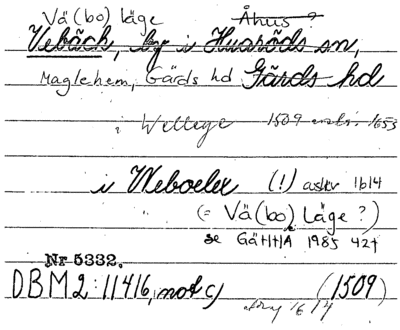 Vä(bo) läge Åhus ?
Vebäck, by i Husröds sn,
Maglehem, Gärds hd Gärds hd
i Wellege 1509 1653
i Weboelex (!) avskr 1614
(= Vä(bo) Läge ?)
se GäHHA 1985 42f
Nr 5332.
DBM 2:11416, not c) (1509)
1614